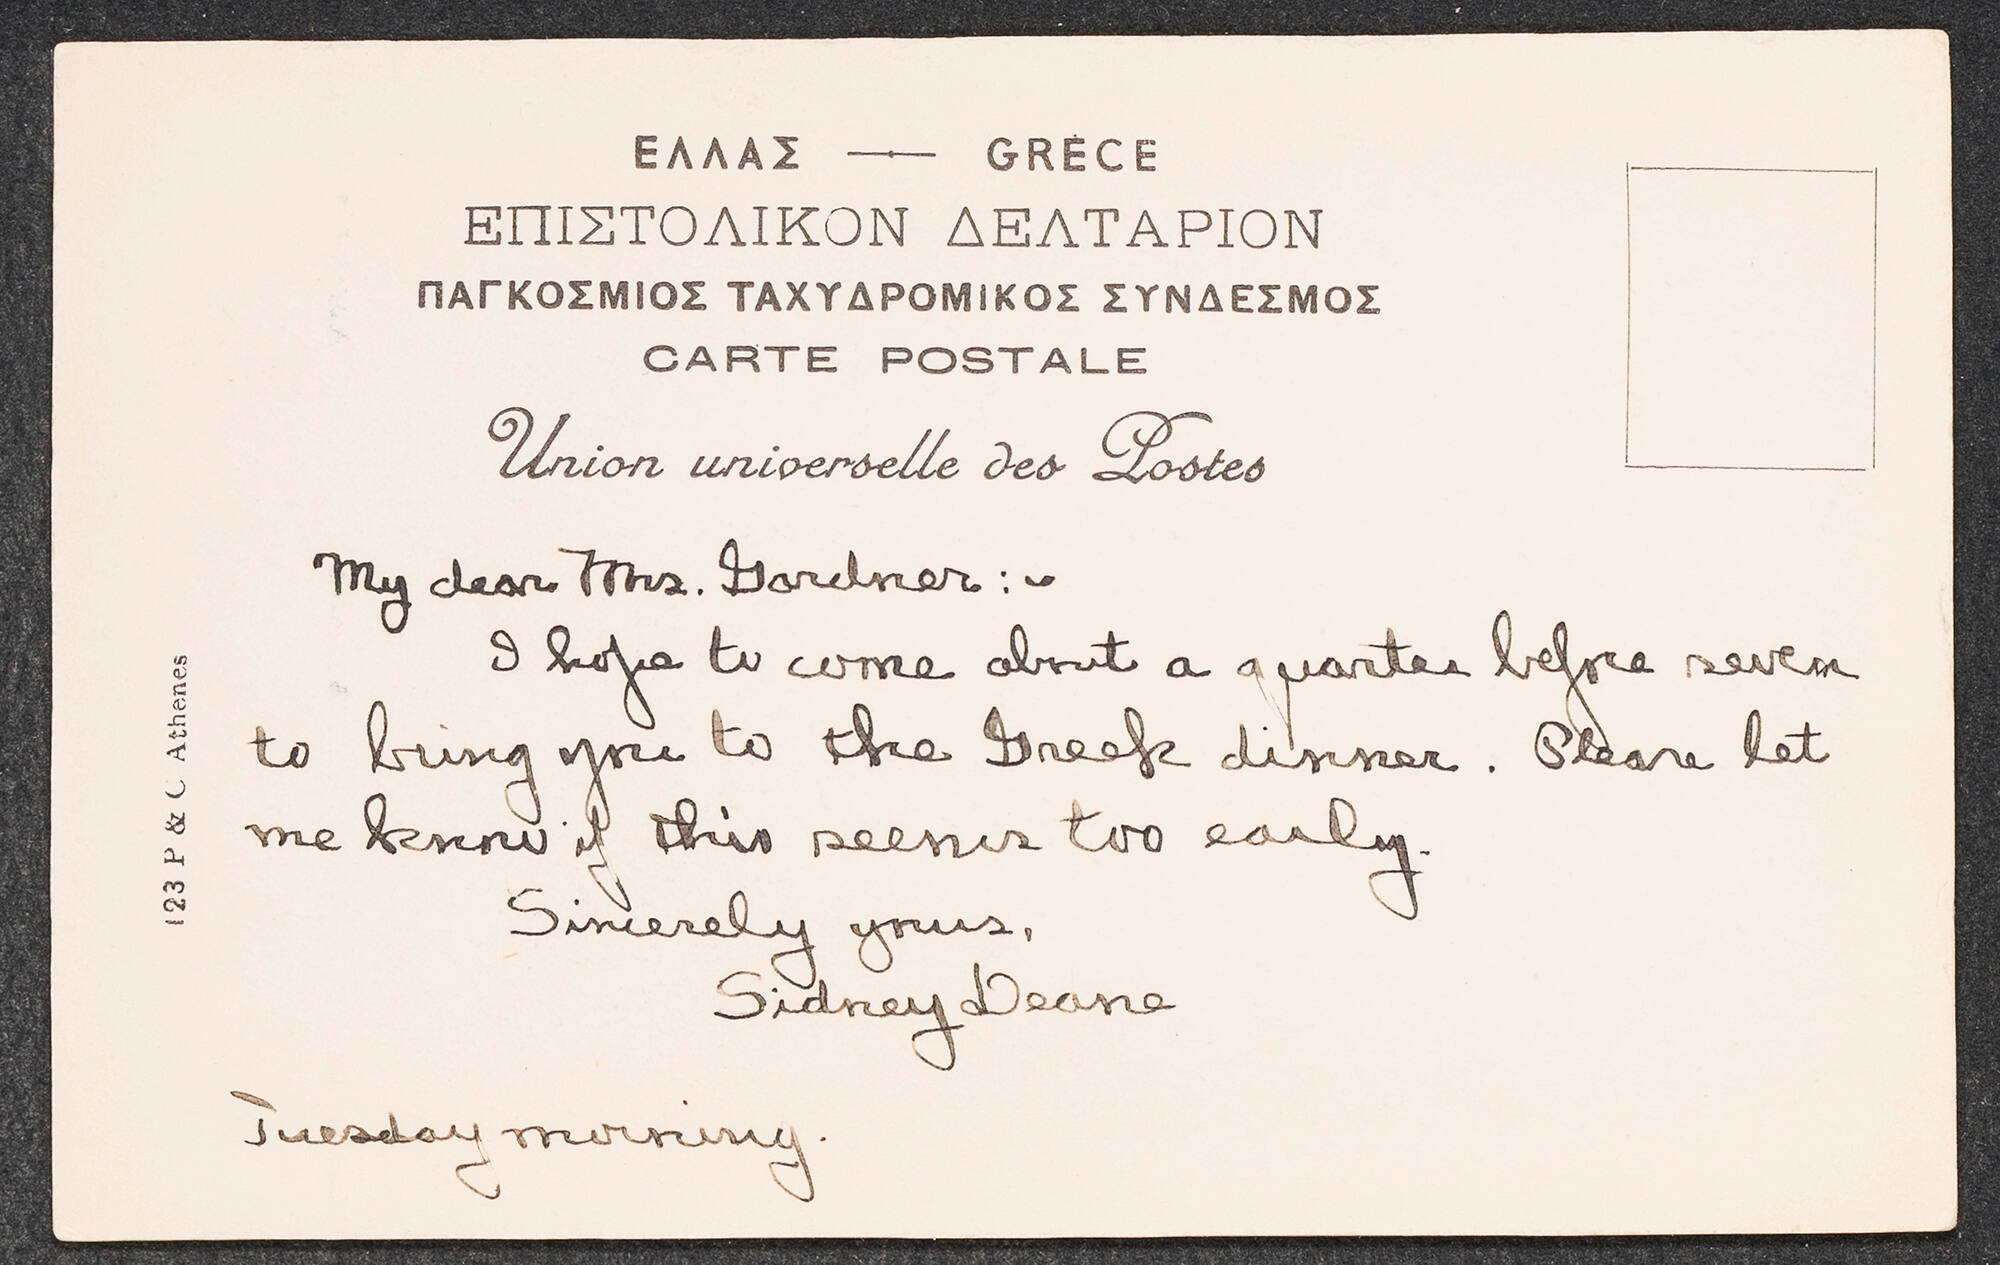 ΕΛΛΑΣ — GRÈCE
ΕΠΙΣΤΟΛΙΚΟΝ ΔΕΛΤΑΡΙΟΝ
ΠΑΓΚΟΣΜΙΟΣ ΤΑΧΥΔΡΟΜΙΚΟΣ ΣΥΝΔΕΣΜΟΣ
CARTE POSTALE
Union universelle des Postes
My dear Mrs. Gardner:~
I hope to come about a quarter before seven
to bring you to the Greek dinner. Please let
me know if this seems too early.
Sincerely yours,
Sidney Deane
Tuesday morning.
123 P & C Athenes